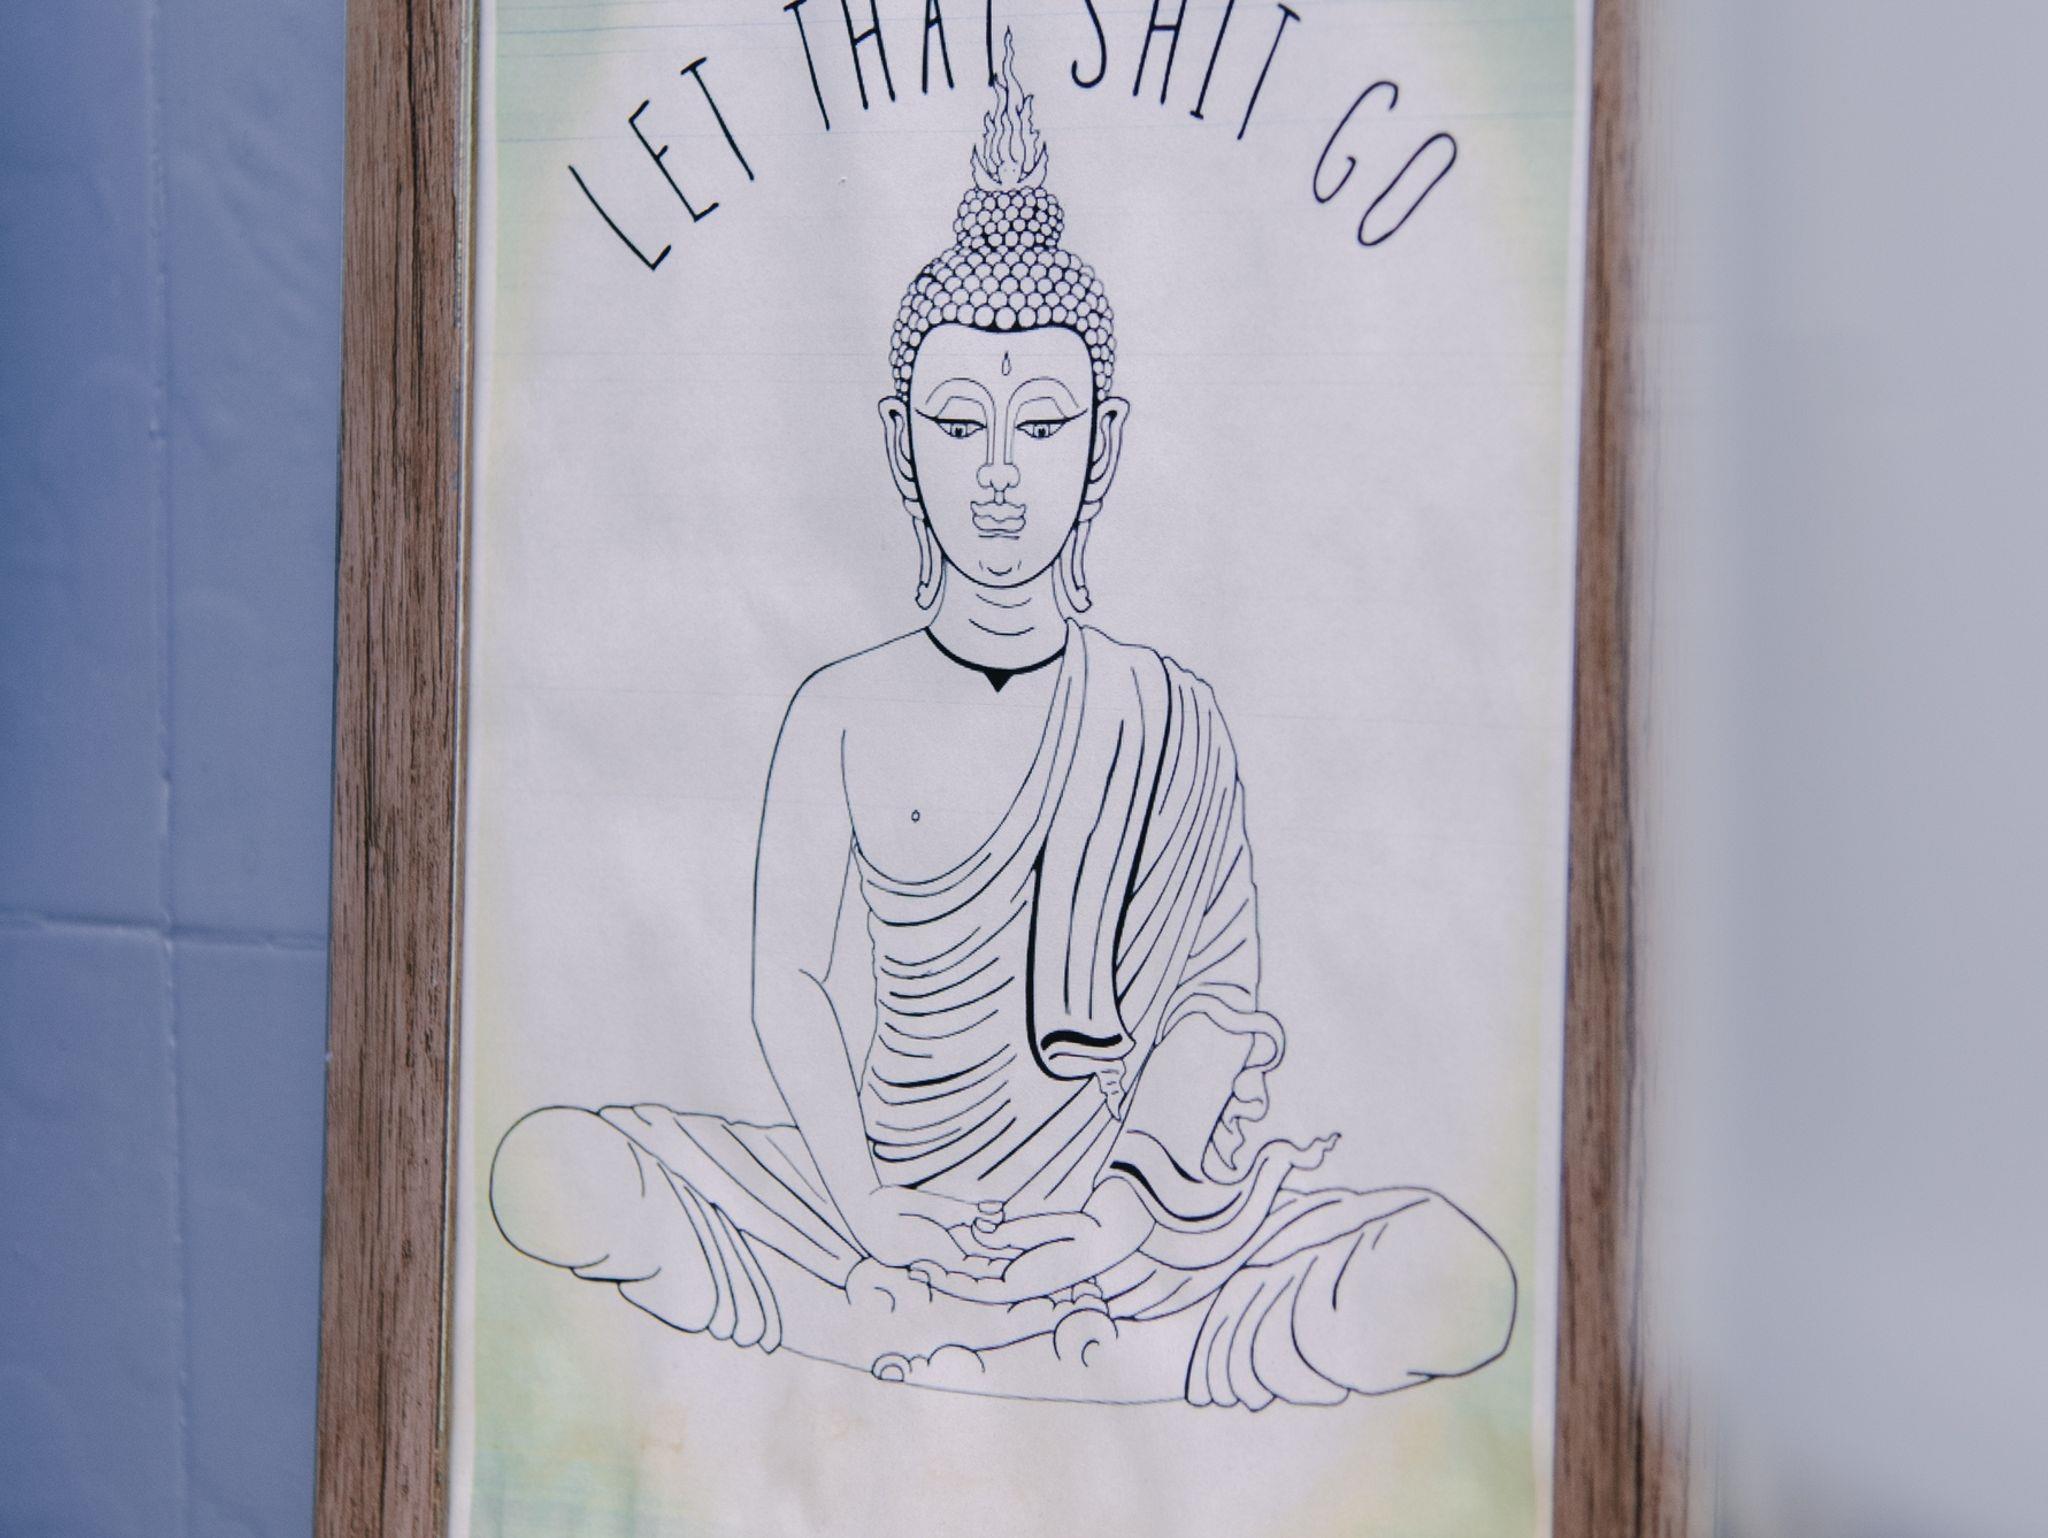 LET THAT SHIT GO